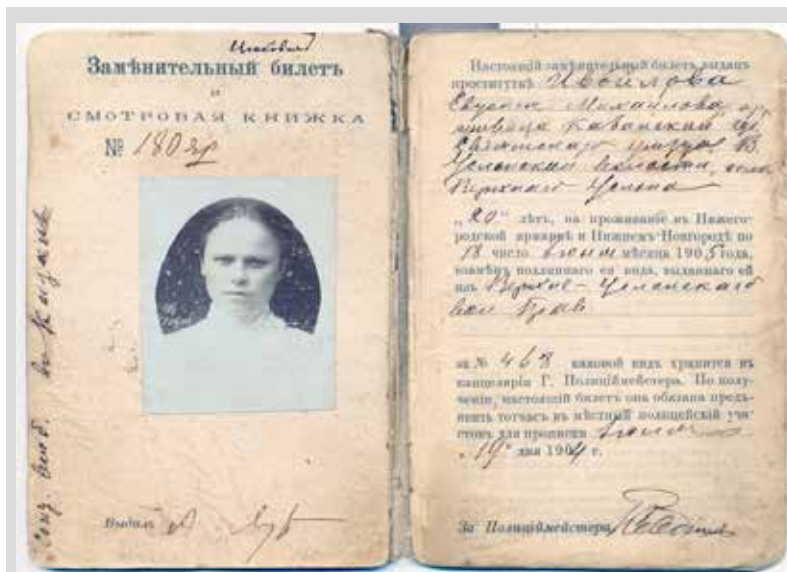 Замѣнительный билетъ
и
СМОТРОВАЯ КНИЖКА
№ 180 яр
въ Казань
Выдалъ
Настоящій замѣнительный билетъ выданъ
проституткѣ Ивойлова
Михайлова
Казанской
Свіяжскаго уѣзда, В.
Услонской волости, села
Верхняго Услона
„20“ лѣтъ, на проживаніе въ Нижего-
родской ярмаркѣ и Нижнемъ-Новгородѣ по
18 число іюля мѣсяца 1905 года,
взамѣнъ подлиннаго ея вида, выданнаго ей
изъ Верхне-Услонскаго
вол. Прав.
за № 468 каковой видъ хранится въ
канцеляріи Г. Полиціймейстера. По полу-
ченіи, настоящій билетъ она обязана предъ-
явить тотчасъ въ мѣстный полицейскій учас-
токъ для прописки іюля
„19“ дня 1904 г.
За Полиціймейстера